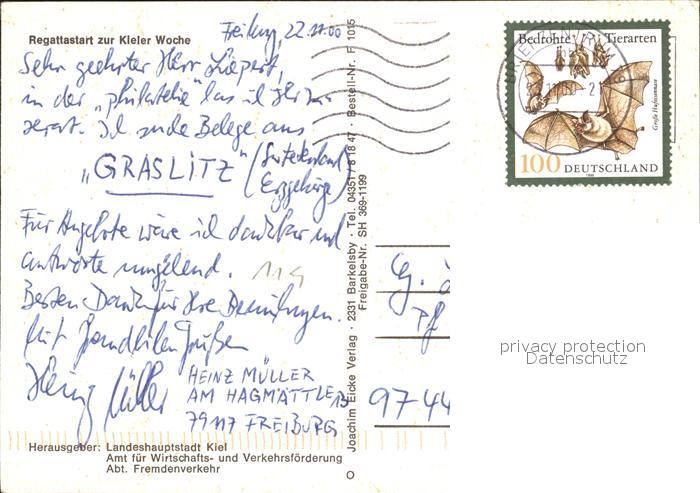 Regattastart zur Kieler Woche
Freiburg, 22.11.00
Sehr geehrter Herr
in der "philatelie" las ich Ihr In-
serat. Ich suche Belege aus
"GRASLITZ" (Sudetenland/
Erzgebirge)
Für Angebote wäre ich dankbar und
antworte umgehend.
114
Besten Dank für Ihre Bemühungen.
Mit freundlichen Grüßen
Heinz Müller
HEINZ MÜLLER
AM HAGMÄTTLE 13
79117 FREIBURG
Herausgeber: Landeshauptstadt Kiel
Amt für Wirtschafts- und Verkehrsförderung
Abt. Fremdenverkehr
Joachim Eicke Verlag · 2331 Barkelsby · Tel. 04351 / 8 18 47 · Bestell-Nr. F 1015
Freigabe-Nr. SH 369-1199
Bedrohte Tierarten
Große Hufeisennase
100 DEUTSCHLAND
Pf
9744
privacy protection
Datenschutz